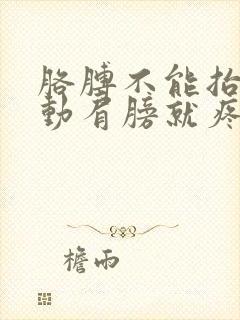 胳膊不能抬
動肩膀就疼
檐雨